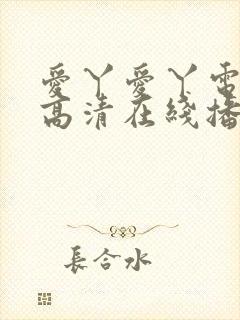 愛丫愛丫電
高清在綫播
長合水